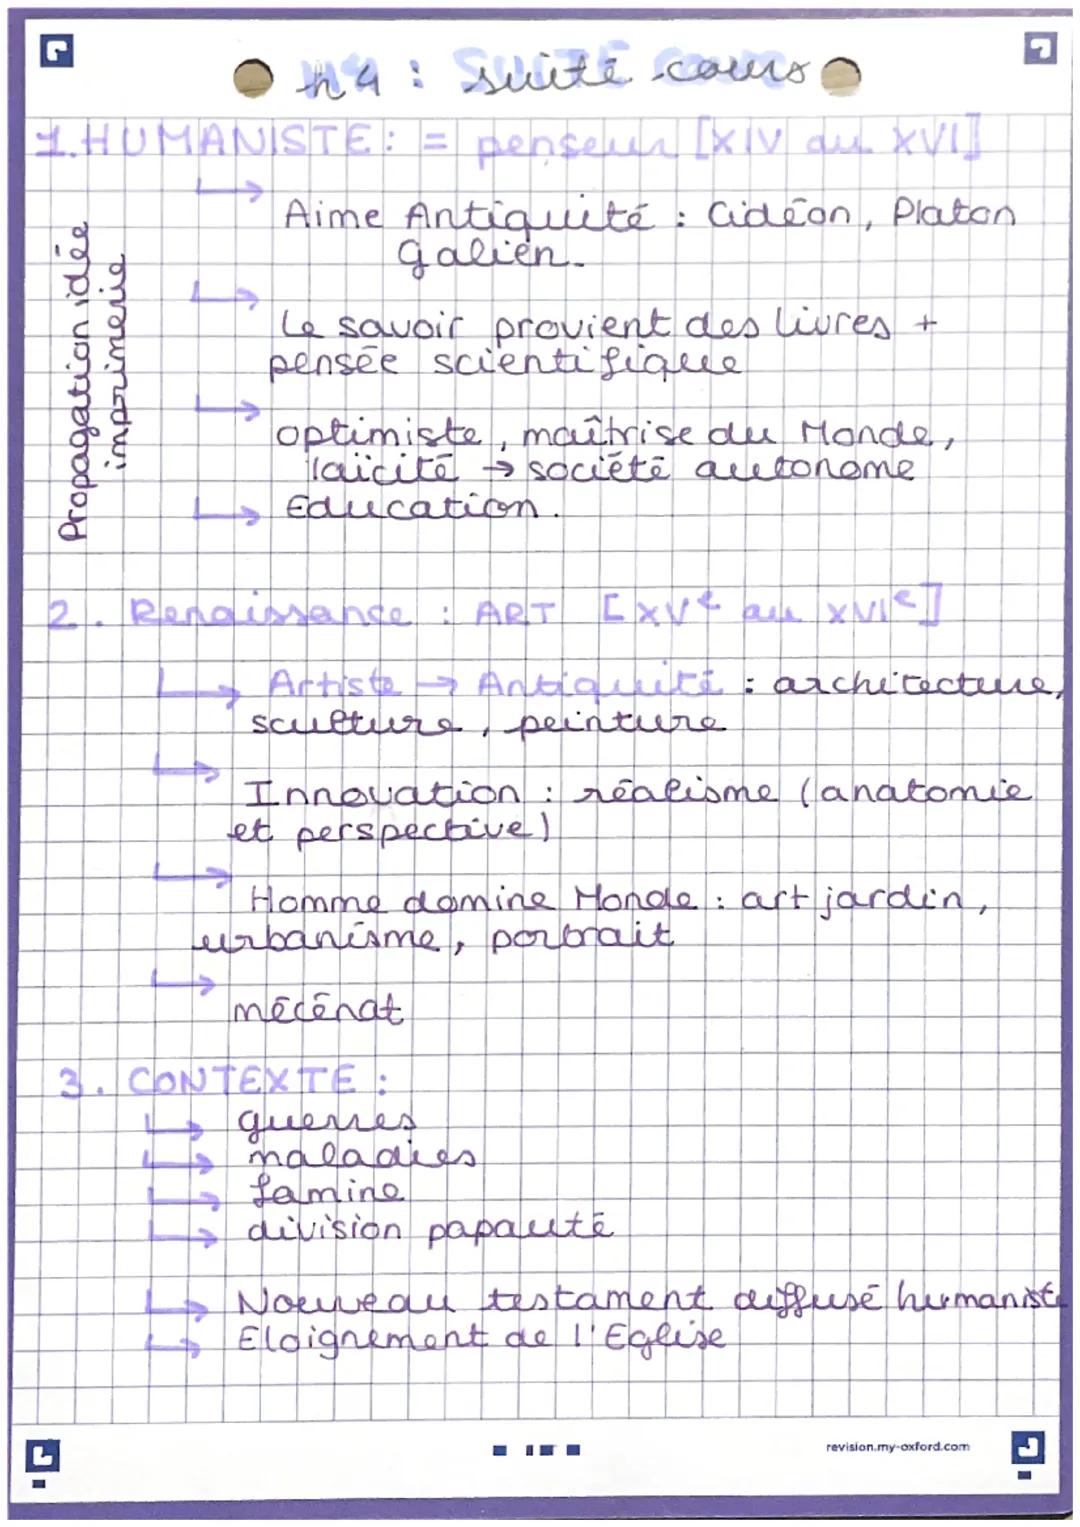 h4 : suite cours
1. HUMANISTE : = penseur [XIV au XVI]
Propagation idée
imprimerie
Aime Antiquité : Cidéon, Platon
Galien.
Le savoir provient des livres +
pensée scientifique
optimiste, maîtrise du Monde,
laïcité → société autonome
Education.
2. Renaissance : ART [XVe au XVIe]
Artiste → Antiquité : architecture,
sculture, peinture
Innovation : réalisme (anatomie
et perspective)
Homme domine Monde : art jardin,
urbanisme, portrait
mécénat
3. CONTEXTE :
guerres
maladies
famine
division papauté
Nouveau testament diffusé humaniste
Eloignement de l'Eglise
revision.my-oxford.com